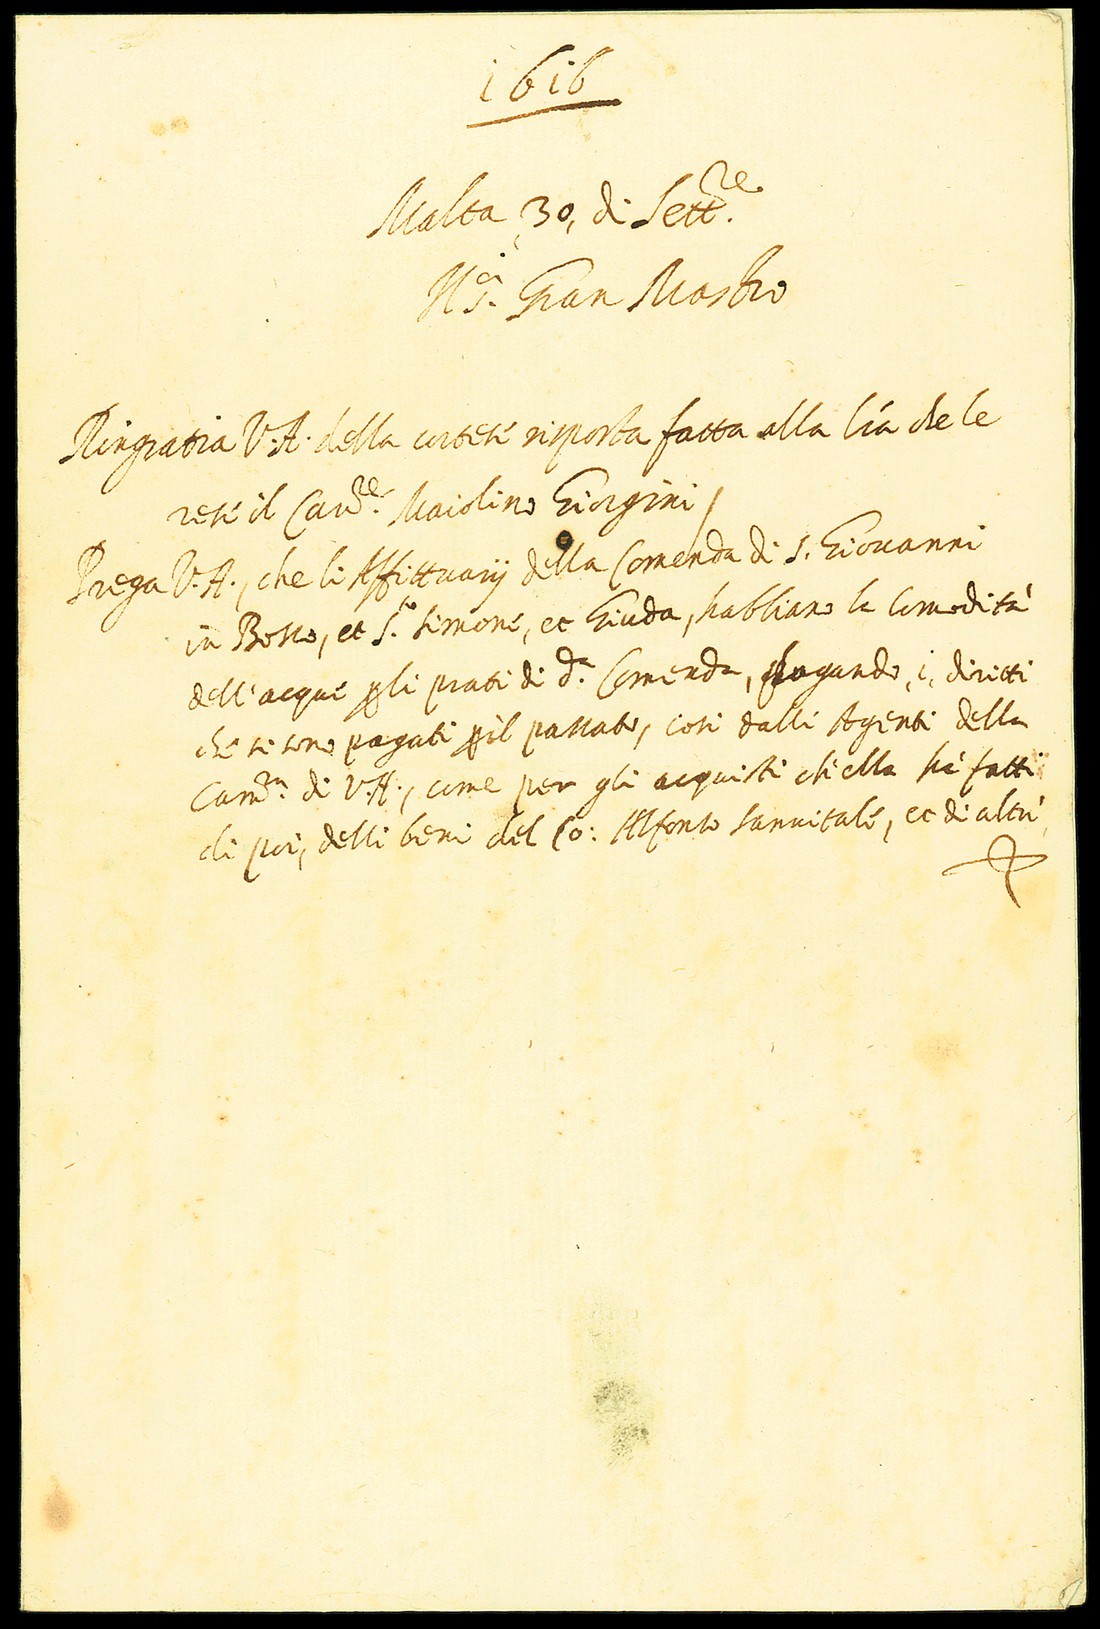 1616
Malta 30, di Sett.re
Il S.r Gran Mastro
Ringratia V. A. della cortese risposta fatta alla l'ra che le
rese il Cav.re Maiolino Giorgini /
Prega V. A., che li Affittuarij della Comenda di S. Giouanni
in Bosco, et S.to Simone, et Giuda, habbiano la Comodità
dell'acque p li prati di d.a Comenda, pagando, i, diritti
che si sono pagati p il passato, così dalli Agenti della
Cam.ra di V. A., come per gli acquisti ch'ella hà fatti
di poi, delli beni del Co: Alfonso Sanuitale, et di altri